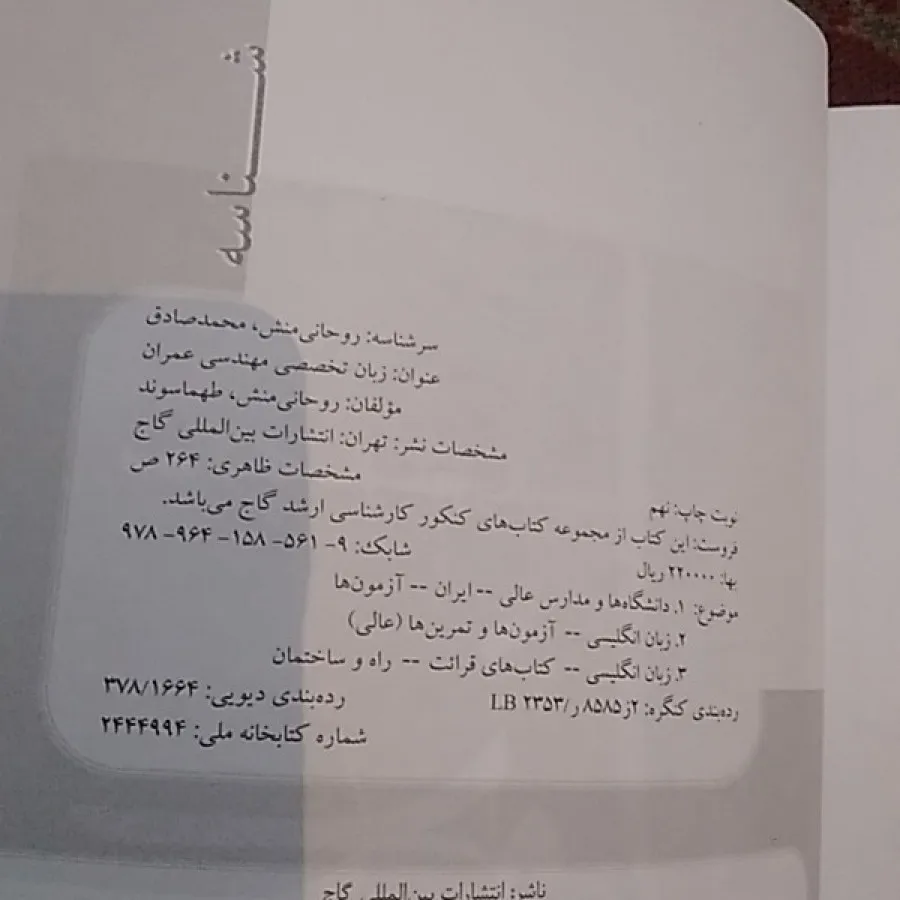 شناسه
سرشناسه: روحانی‌منش، محمدصادق
عنوان: زبان تخصصی مهندسی عمران
مؤلفان: روحانی‌منش، طهماسوند
مشخصات نشر: تهران: انتشارات بین‌المللی گاج
مشخصات ظاهری: ۲۶۴ ص
نوبت چاپ: نهم
فروست: این کتاب از مجموعه کتاب‌های کنکور کارشناسی ارشد گاج می‌باشد.
بها: ۲۲۰۰۰۰ ریال
شابک: ۹- ۵۶۱- ۱۵۸- ۹۶۴- ۹۷۸
موضوع: ۱. دانشگاه‌ها و مدارس عالی -- ایران -- آزمون‌ها
۲. زبان انگلیسی -- آزمون‌ها و تمرین‌ها (عالی)
۳. زبان انگلیسی -- کتاب‌های قرائت -- راه و ساختمان
رده‌بندی کنگره: ۲ز۸۵۸۵ر/LB ۲۳۵۳ رده‌بندی دیویی: ۳۷۸/۱۶۶۴
شماره کتابخانه ملی: ۲۴۴۴۹۹۴
ناشر: انتشارات بین‌المللی گاج